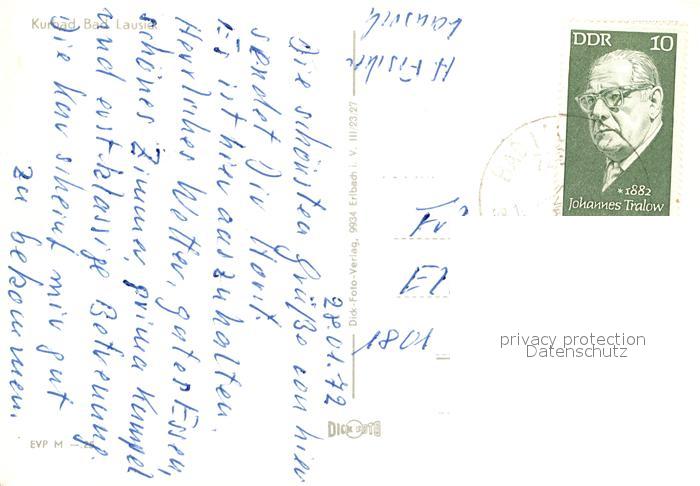 Kurbad Bad Lausick
28.01.72
Die schönsten Grüße von hier
sendet Dir Horst.
Es ist hier auszuhalten.
Herrliches Wetter, gutes Essen,
schönes Zimmer, prima Kumpel
und erstklassige Betreuung.
Die Kur scheint mir gut
zu bekommen.
EVP M —.25
Dick-Foto-Verlag, 9934 Erlbach i. V. III/23/27
DICK FOTO
H. Fischer
Lausick
Fr
El
1801
DDR 10
*1882
Johannes Tralow
BAD
privacy protection
Datenschutz